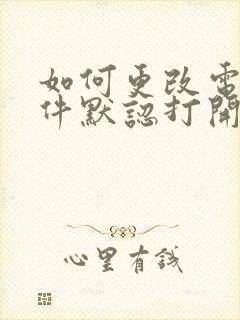 如何更改電
件默認打開
心里有錢